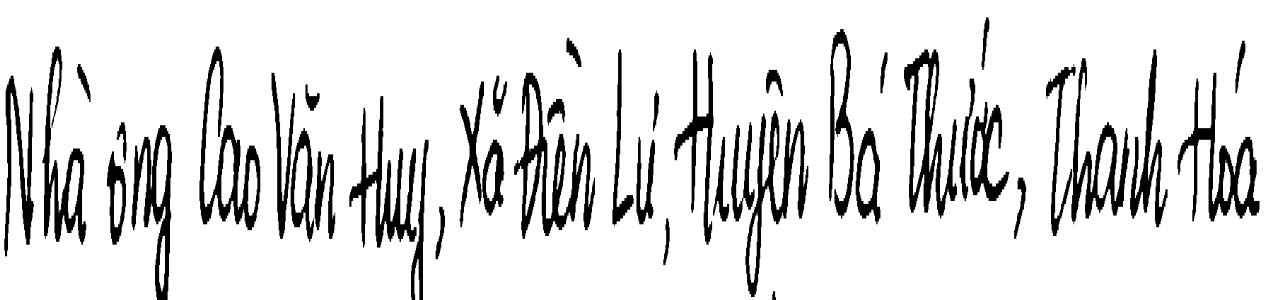 Nhà ông Cao Văn Huy, Xã Điền Lư, Huyện Bá Thước, Thanh Hóa